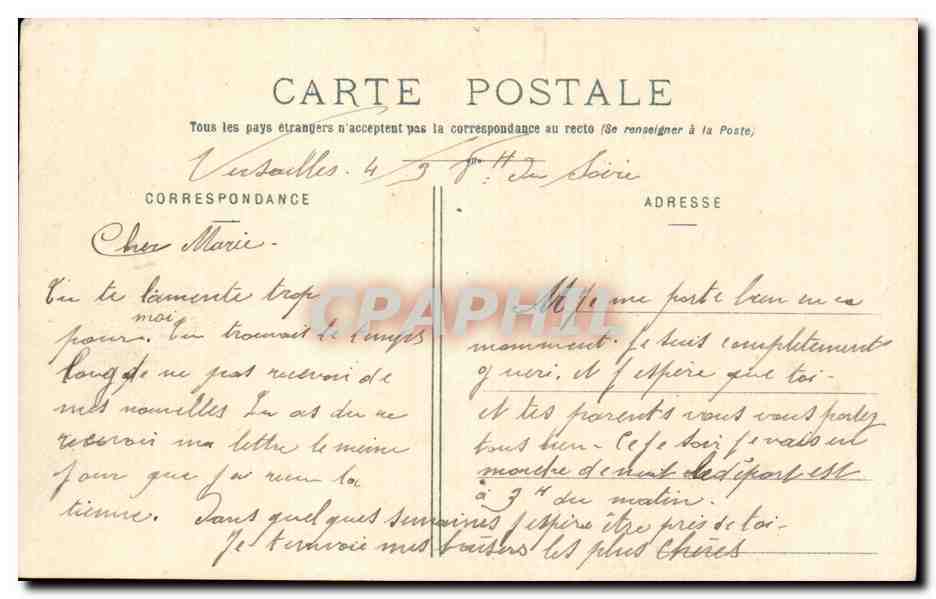 CARTE POSTALE
Tous les pays étrangers n'acceptent pas la correspondance au recto (Se renseigner à la Poste)
Versailles. 4 / 9 8 H du Soire
CORRESPONDANCE
ADRESSE
Cher Marie -
Tu te lamente trop
pour moi. Tu trouvait le temps
long de ne pas recevoir de
mes nouvelles Tu as du re
recevoir ma lettre le meme
jour que j'ai recu la
tienne. Dans quelques semaines j'espère être près de toi-
Je t'envoie mes baisers les plus chères
je me porte bien en ce
momment. Je suis completement
gueri. et j'espère que toi-
et tes parents vous vous portez
tous bien - Ce soir je vais en
marche de nuit le départ est
à 3 H du matin.
CPAPHIL